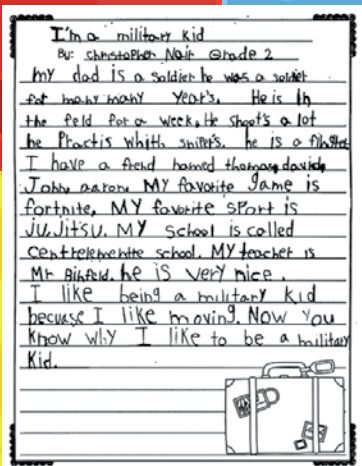 I'm a military kid
By: Christopher Nair Grade 2
my dad is a soldier he was a soldier
fot mahy mahy years. He is ih
the feld for a week, He shoot's a lot
he Practis whith sniper's. he is a
I have a frend hamed thomas, david,
Johy aaron. MY favorite Jame is
fortnite, MY favorite sport is
JuJitsu. MY school is called
school. MY teacher is
Mr he is very nice.
I like being a military kid
becuase I like moving. Now you
Know why I like to be a military
Kid.